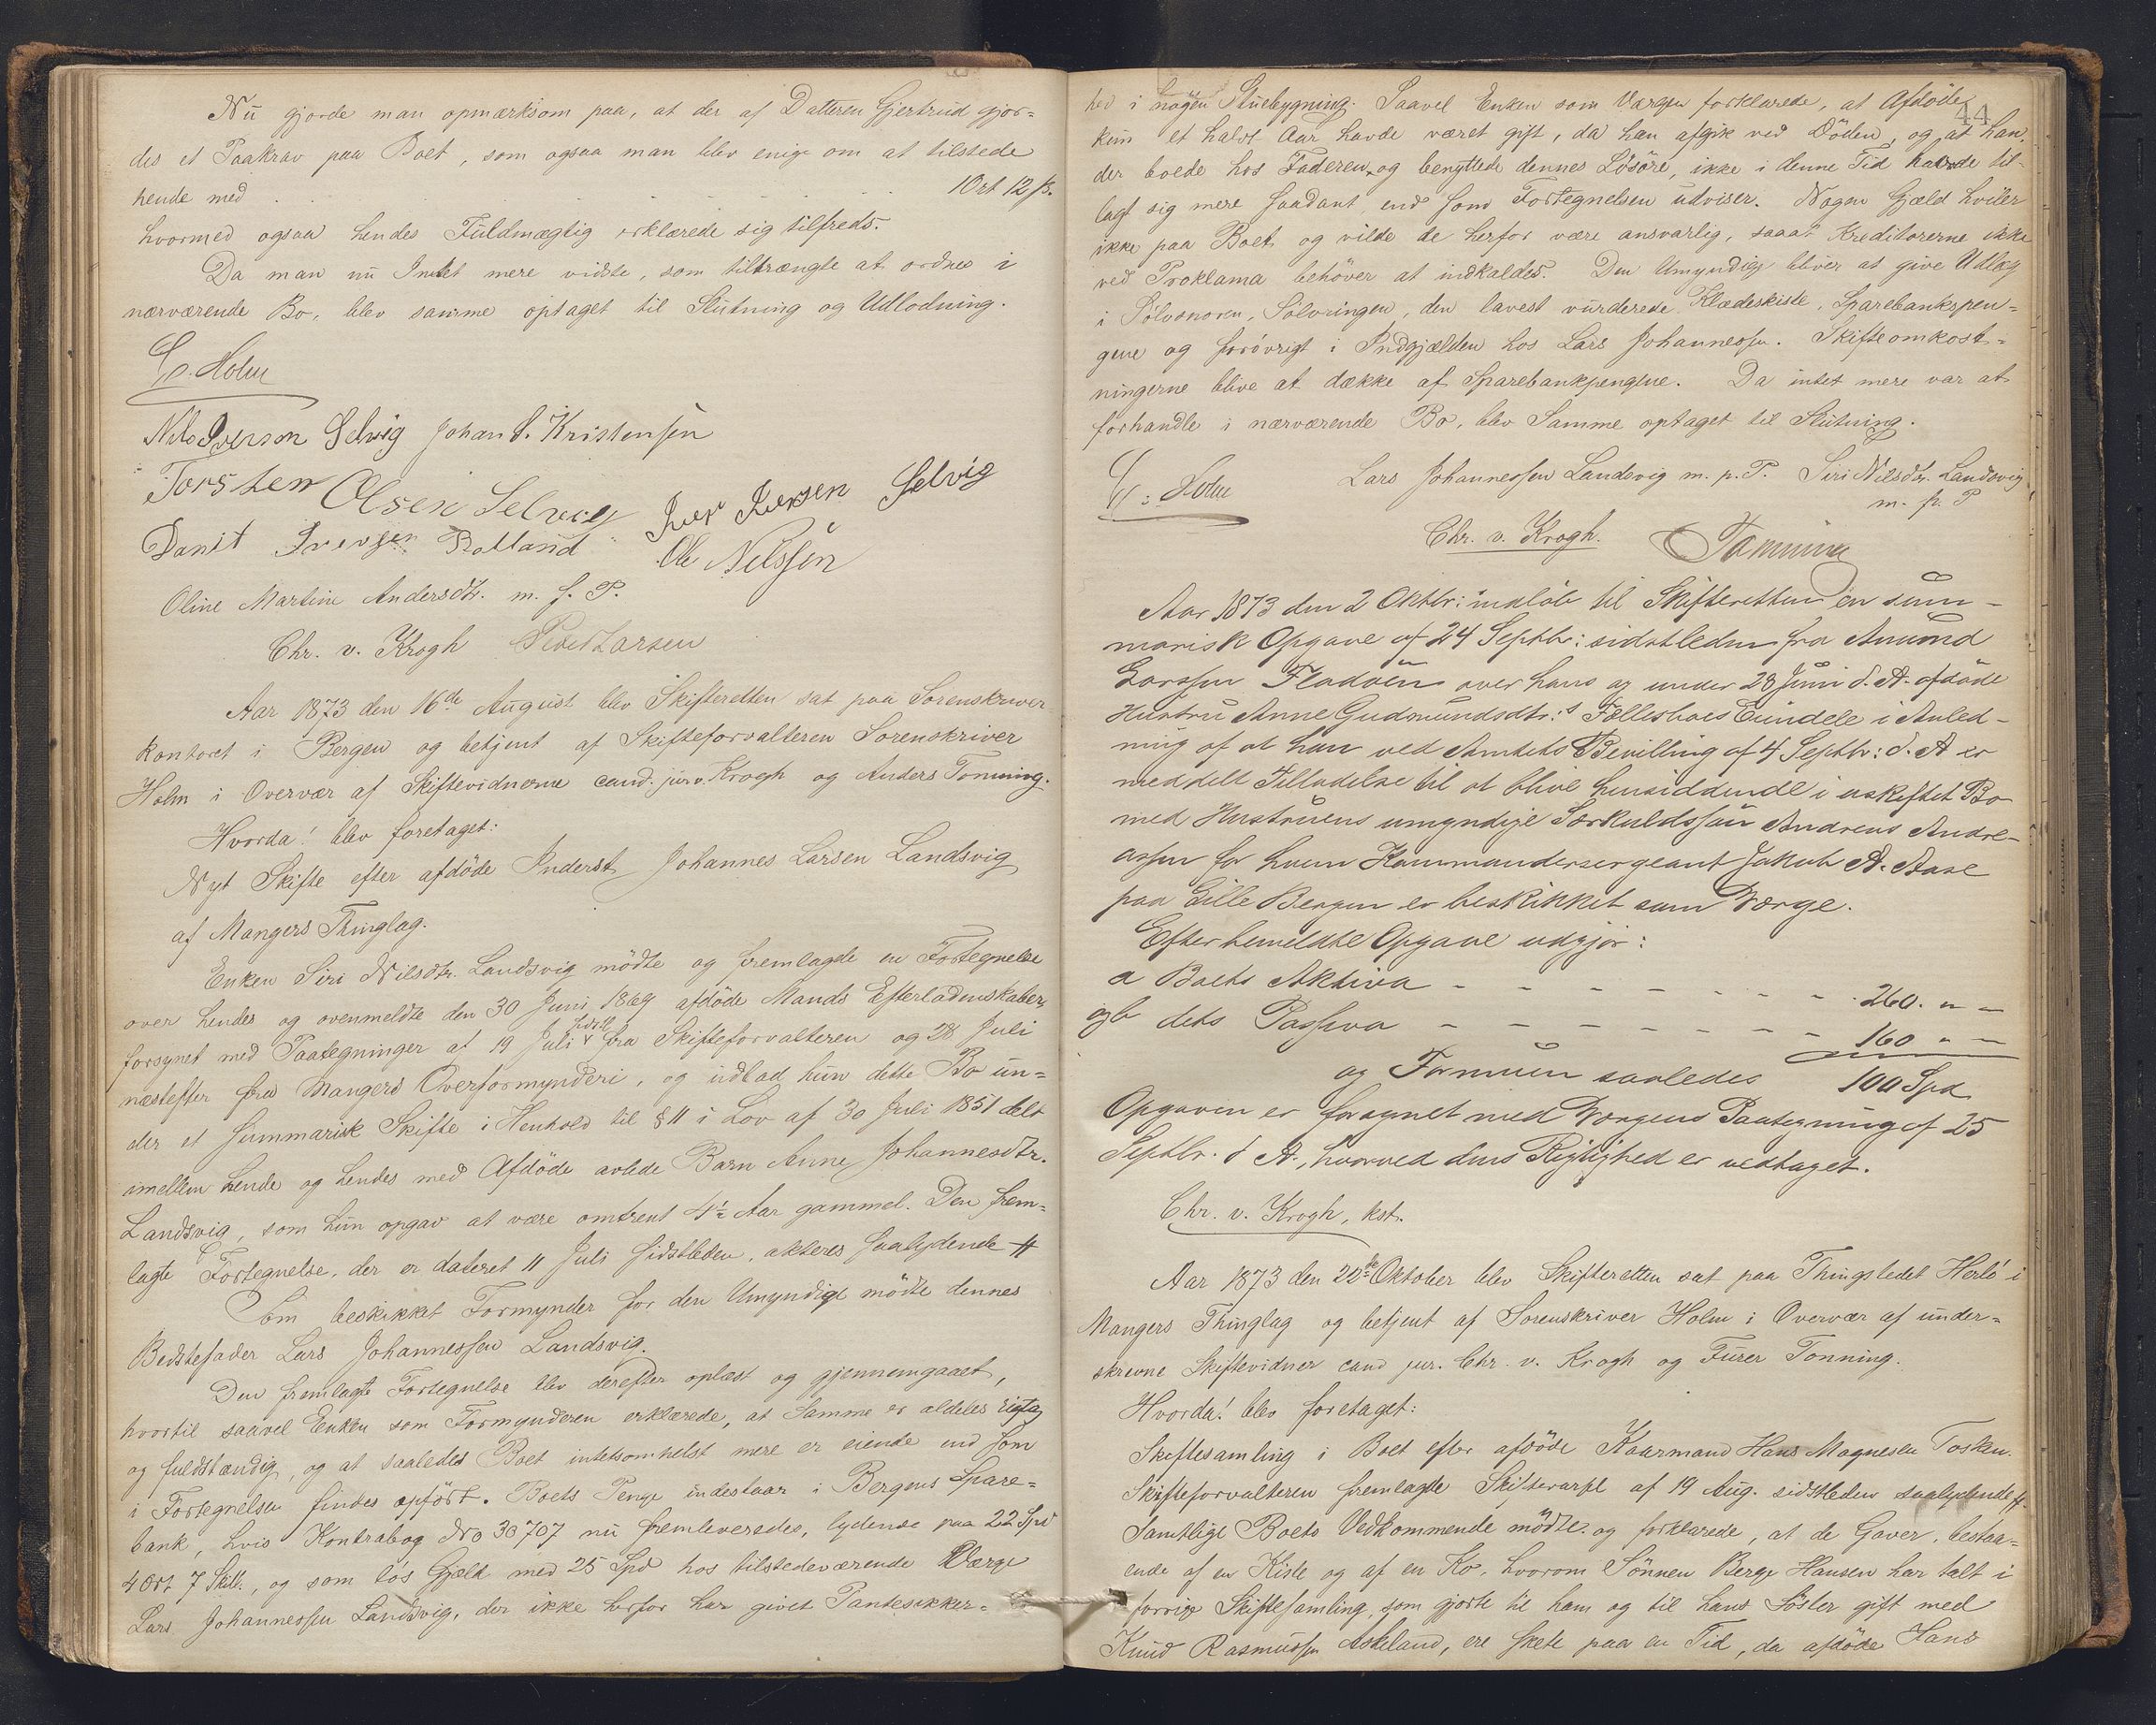 Nu gjorde man opmærksom paa, at der af Datteren Gjertrud gjor-
des et Paakrav paa Boet, som ogsaa man blev enige om at tilstede
hende med . . . . . . . 1 Ort 12 ß.
hvormed ogsaa hendes Fuldmægtig erklærede sig tilfreds.
Da man nu Intet mere vidste, som tiltrængte at ordnes i
nærværende Bo, blev samme optaget til Slutning og Udlodning.
Holm
Nils Iverson Selvig Johan S. Kristensen
Torsten Olsen Selvig Iver Iversen Selvig
Danit Iversen Rotland Ole Nilssen
Oline Martine Andersdtr. m. f. P.
Chr. v. Krogh Peder Larsen
Aar 1873 den 16de August blev Skifteretten sat paa Sorenskriver
kontoret i Bergen og betjent af Skifteforvalteren Sorenskriver
Holm i Overvær af Skiftevidnerne cand. jur. v. Krogh og Anders Tonning.
Hvorda! blev foretaget:
Nyt Skifte efter afdöde Inderst Johannes Larsen Landsvig
af Mangers Thinglag.
Enken Siri Nilsdtr. Landsvig mödte og fremlagde en Fortegnelse
over hendes og ovenmeldte den 30 Juni 1869 afdöde Mands Efterladenskaber,
forsynet med Paategninger af 19 Juli sidstl fra Skifteforvalteren og 28 Juli
næstefter fra Mangers Overformynderi, og udbad hun dette Bo un-
der et summarisk Skifte i Henhold til § 11 i Lov af 30 Juli 1851 delt
imellem hende og hendes med Afdöde avlede Barn Anne Johannesdtr.
Landsvig, som hun opgav at være omtrent 4½ Aar gammel. Den frem-
lagte Fortegnelse, der er dateret 11 Juli sidstleden, akteres saalydende #
Som beskikket Formynder for den Umyndige mödte dennes
Bedstefader Lars Johannessen Landsvig.
Den fremlagte Fortegnelse blev derefter oplæst og gjennemgaaet,
hvortil saavel Enken som Formynderen erklærede, at Samme er aldeles rigtig
og fuldstændig, og at saaledes Boet intetsomhelst mere er eiende end som
i Fortegnelsen findes opfört. Boets Penge indestaar i Bergens Spare-
bank, hvis Kontrabog No 30707 nu fremleveredes, lydende paa 22 Spd
4 Ort 7 Skill., og som lös Gjæld med 25 Spd hos tilstedeværende Værge
Lars Johannessen Landsvig, der ikke herfor har givet Pantesikker-
44
hed i nogen Stuebygning. Saavel Enken som Værgen forklarede, at Afdöde
kun et halvt Aar havde været gift, da han afgik ved Döden, og at han,
der boede hos Faderen, og benyttede dennes Lösöre, ikke i denne Tid havde til-
lagt sig mere saadant, end som Fortegnelsen udviser. Nogen Gjæld hviler
ikke paa Boet og vilde de herfor være ansvarlig, saaat Kreditorerne ikke
ved Proklama behöver at indkaldes. Den Umyndige bliver at give Udlæg
i Sölvsnoren, Sölvringen, den lavest vurderede Klædeskiste, Sparebankspen-
gene og forövrigt i Indgjælden hos Lars Johannessen. Skifteomkost-
ningerne blive at dække af Sparebankpengene. Da intet mere var at
forhandle i nærværende Bo, blev Samme optaget til Slutning.
Holm Lars Johannessen Landsvig m. p. P. Siri Nilsdtr. Landsvig
m. p. P
Chr. v. Krogh. Tonning
Aar 1873 den 2 Oktbr: indlöb til Skifteretten en sum-
marisk Opgave af 24 Septbr: sidstleden fra Amund
Larssen Fladöen over hans og under 28 Juni d. A. afdöde
Hustru Anne Gudmundsdtr:s Fællesboes Eiendele i Anled-
ning af at han ved Amtets Bevilling af 4 Septbr: d. A er
meddelt Tilladelse til at blive hensiddende i uskiftet Bo
med Hustruens umyndige Særkuldssön Andreas Andre-
assen for hvem Kommandersergeant Jakob A. Aase
paa Lille Bergen er beskikket som Værge.
Efter bemeldte Opgave udgjör:
a Boets Aktiva - - - - - - - 260. " -
og b dets Passiva - - - - - - - 160 " -
og Formuen saaledes 100 Spd
Opgaven er forsynet med Værgens Paategning af 25
Septbr. d A., hvorved dens Rigtighed er vedtaget.
Chr. v. Krogh, kst.
Aar 1873 den 22de Oktober blev Skifteretten sat paa Thingstedet Herlö i
Mangers Thinglag og betjent af Sorenskriver Holm i Overvær af under-
skrevne Skiftevidner cand jur. Chr. v. Krogh og Furer Tonning.
Hvorda! blev foretaget:
Skiftesamling i Boet efter afdöde Kaarmand Hans Magnesen Tosken.
Skifteforvalteren fremlagde Skiftevarsel af 19 Aug. sidstleden saalydende #
Samtlige Boets Vedkommende mödte og forklarede, at de Gaver, bestaa-
ende af en Kiste og af en Ko, hvorom Sönnen Berge Hansen har talt i
forrige Skiftesamling, som gjorte til ham og til hans Söster gift med
Knud Rasmussen Askeland, ere skete paa en Tid, da afdöde Hans